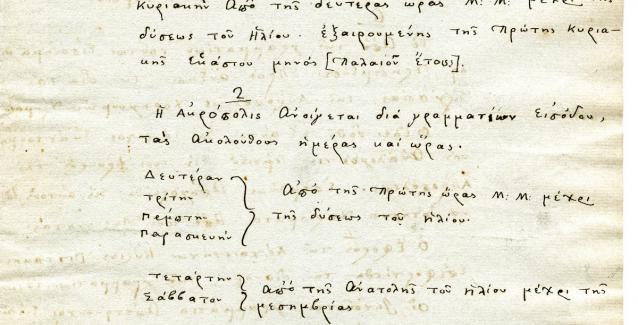 Κυριακὴν ἀπὸ τῆς δευτέρας ὥρας Μ: Μ: μέχρι τῆς
δύσεως τοῦ Ἡλίου. ἐξαιρουμένης τῆς πρώτης Κυρια-
κῆς ἑκάστου μηνός [Παλαιοῦ Ἔτους].
2
Ἡ Ἀκρόπολις ἀνοίγεται διὰ γραμματίων εἰσόδου,
τὰς ἀκολούθους ἡμέρας καὶ ὥρας.
Δευτέραν
τρίτην
Πέμπτην
Παρασκευήν
} ἀπὸ τῆς πρώτης ὥρας Μ: Μ: μέχρι
τῆς δύσεως τοῦ ἡλίου.
τετάρτην
Σάββατον
} ἀπὸ τῆς ἀνατολῆς τοῦ ἡλίου μέχρι τῆς
μεσημβρίας